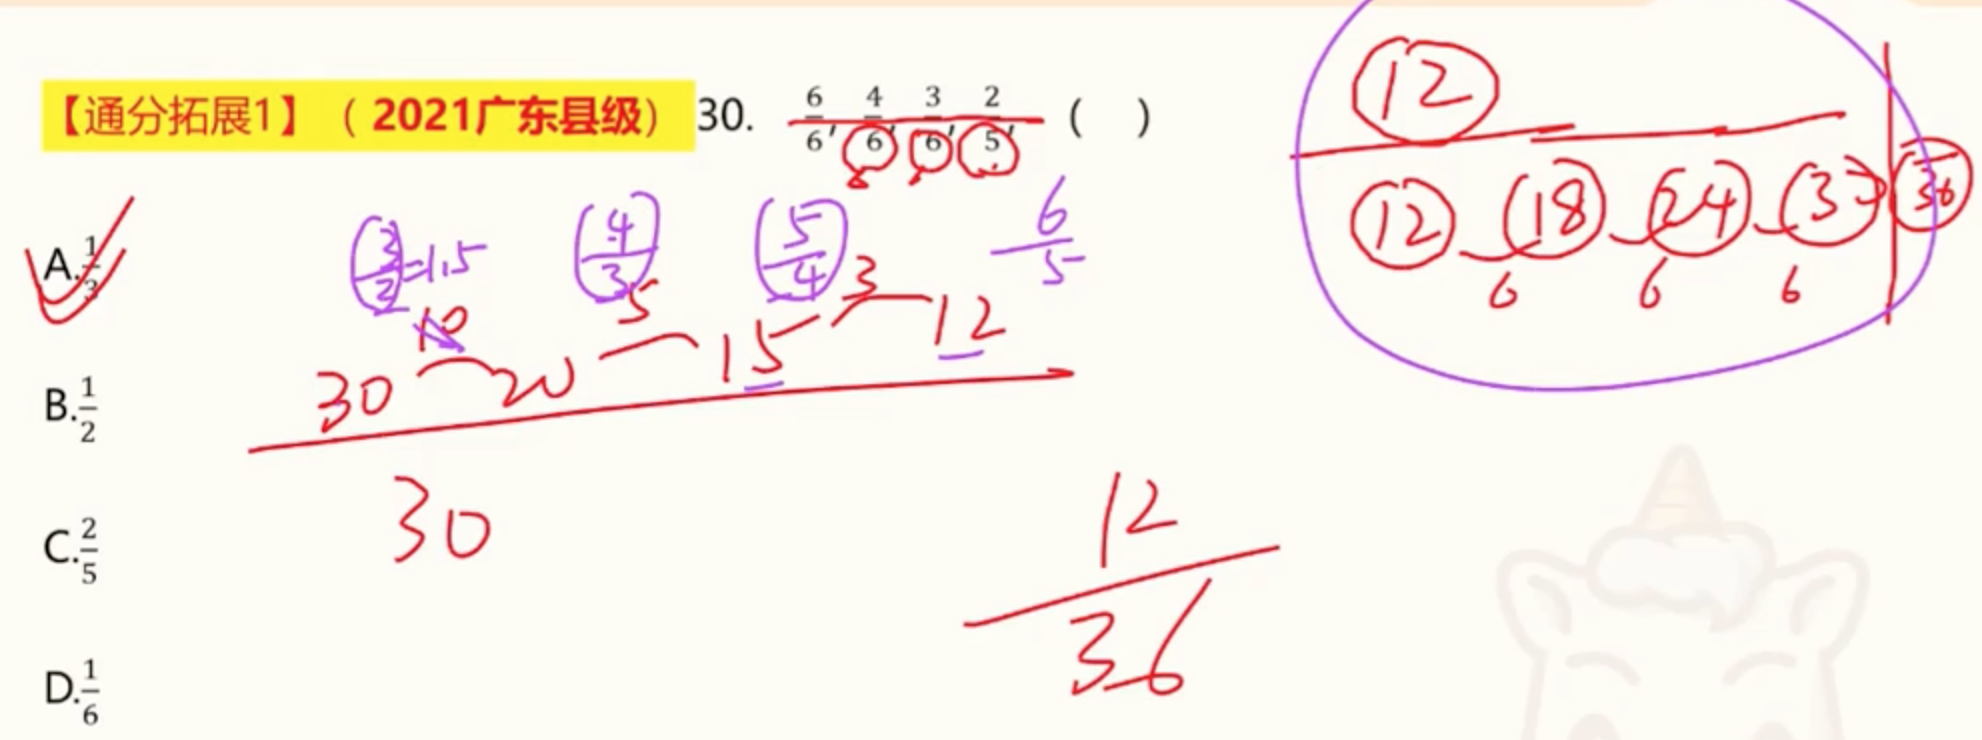 【通分拓展1】（2021广东县级）30. 6/6, 4/6, 3/6, 2/5, ( )
A. 1/3
B. 1/2
C. 2/5
D. 1/6
3/2=1.5 4/3 5/4 6/5
10 5 3
30 20 15 12
30
12
12 18 24 30 36
6 6 6
12
36